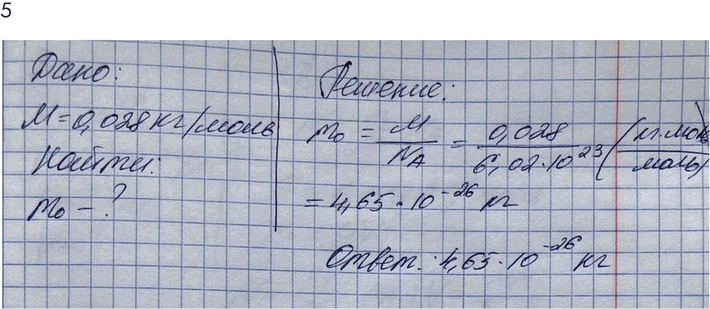 5
Дано:
M=0,028 кг/моль
Найти:
m₀ - ?
Решение:
m₀ = M/N_A = 0,028/6,02·10²³ (кг·моль/моль)
= 4,65·10⁻²⁶ кг
Ответ: 4,65·10⁻²⁶ кг